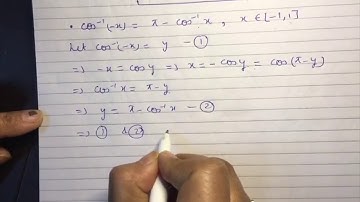 • cos⁻¹(-x) = π - cos⁻¹x , x ∈ [-1,1]
Let cos⁻¹(-x) = y - ①
⇒ -x = cos y ⇒ x = - cos y = cos(π-y)
⇒ cos⁻¹x = π-y
⇒ y = π - cos⁻¹x - ②
⇒ ① & ②